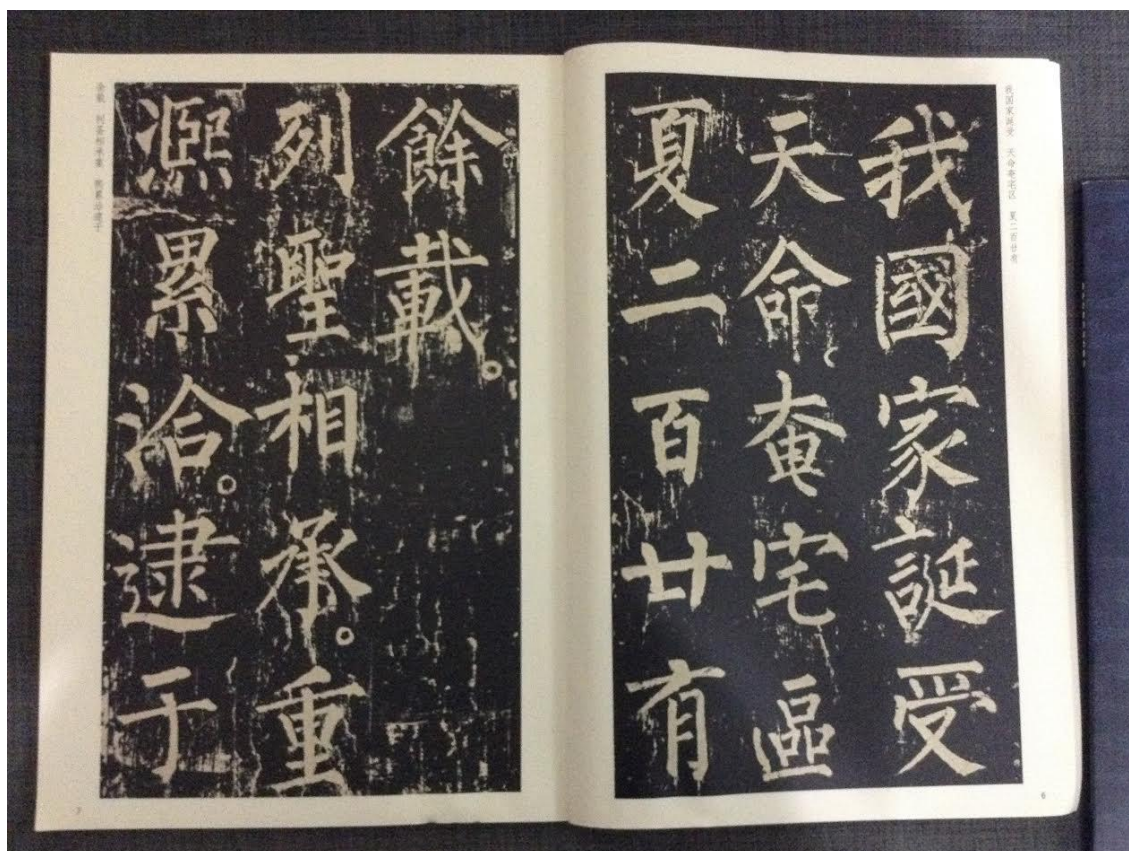 我国家诞受　天命奄宅区　夏二百廿有
我國家誕受
天命奄宅區
夏二百廿有
6
餘載。
列聖相承。重
凞累洽。逮于
余载　列圣相承重　熙累洽逮于
7